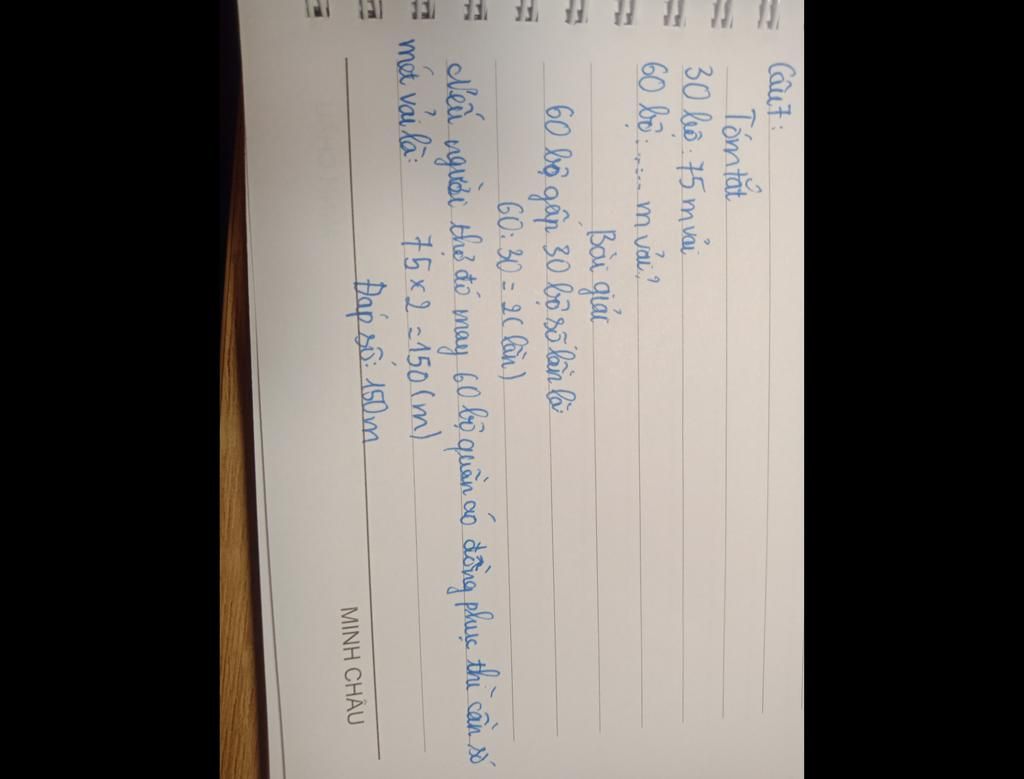 Câu 7:
Tóm tắt
30 bộ: 75 m vải
60 bộ: ..... m vải?
Bài giải
60 bộ gấp 30 bộ số lần là
60 : 30 = 2 (lần)
Nếu người thợ đó may 60 bộ quần áo đồng phục thì cần số
mét vải là: 75 x 2 = 150 (m)
Đáp số: 150m
MINH CHÂU